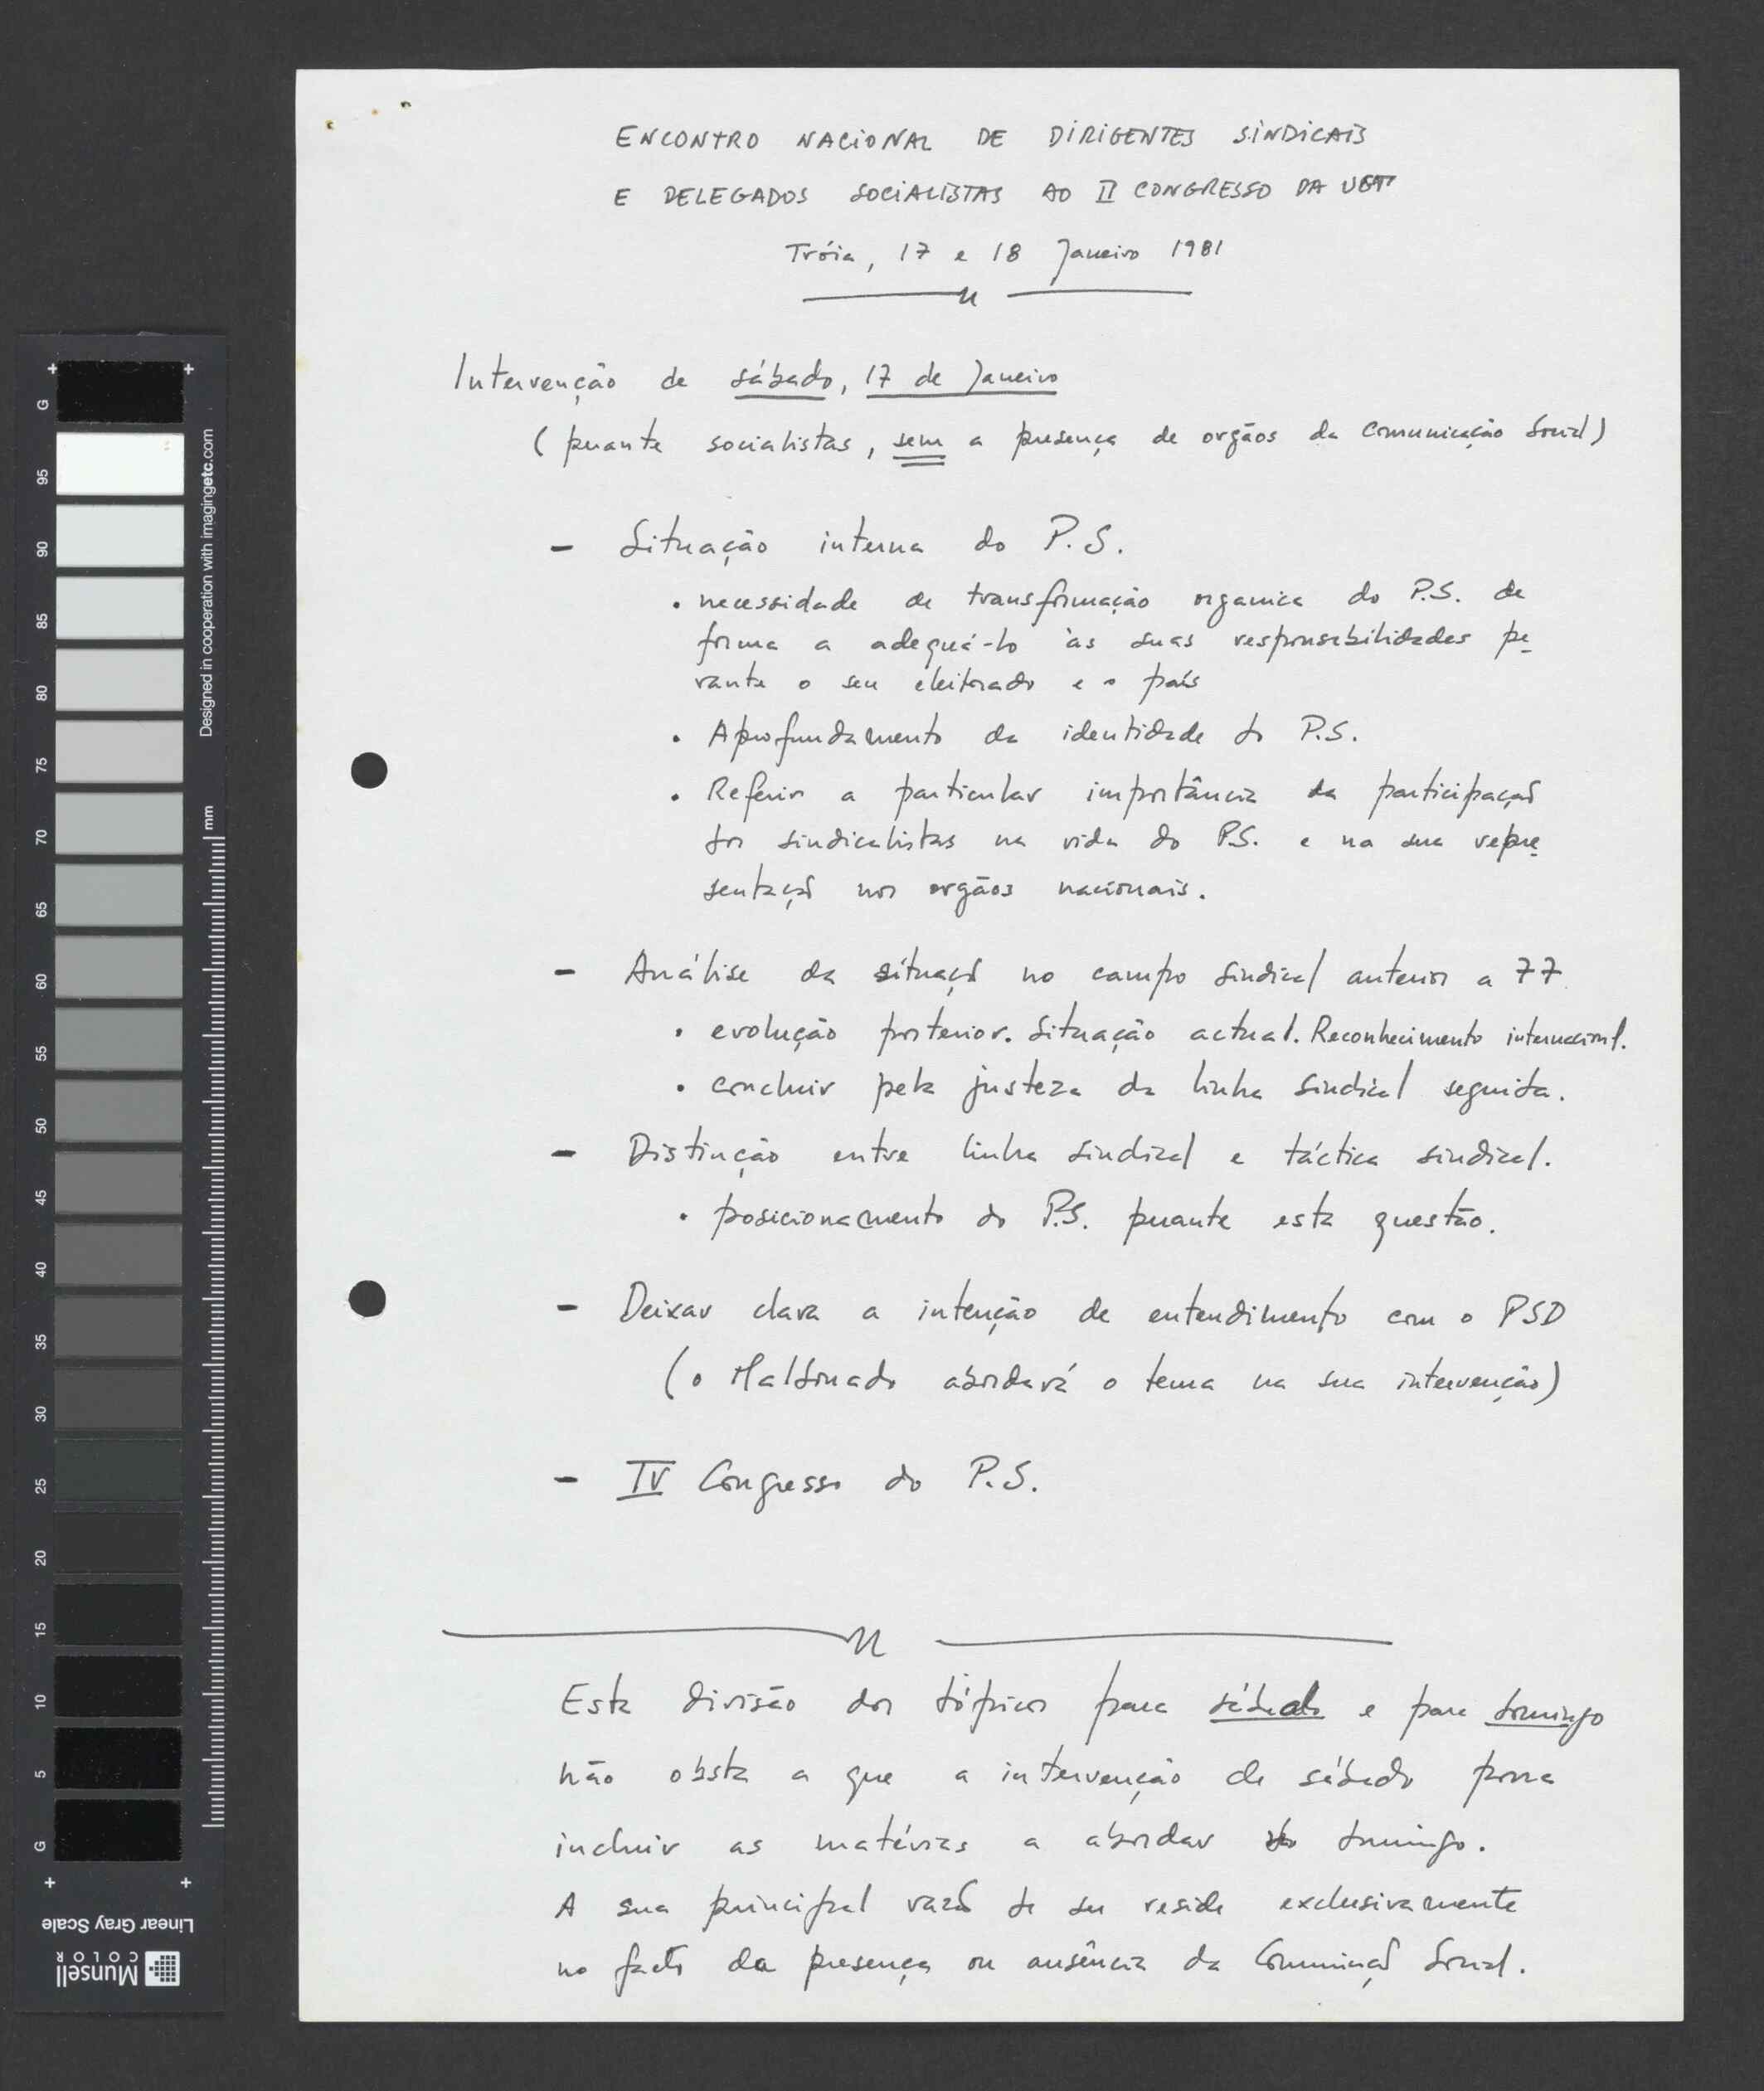 ENCONTRO NACIONAL DE DIRIGENTES SINDICAIS
E DELEGADOS SOCIALISTAS AO II CONGRESSO DA UGT
Tróia, 17 e 18 Janeiro 1981
Intervenção de sábado, 17 de Janeiro
(perante socialistas, sem a presença de orgãos da Comunicação Social)
- Situação interna do P.S.
• necessidade de transformação organica do P.S. de
forma a adequá-lo às suas responsabilidades pe-
rante o seu eleitorado e o país
• Aprofundamento da identidade do P.S.
• Referir a particular importância da participação
dos sindicalistas na vida do P.S. e na sua repre-
sentação nos orgãos nacionais.
- Análise da situação no campo sindical anterior a 77
• evolução posterior. Situação actual. Reconhecimento internacional.
• concluir pela justeza da linha sindical seguida.
- Distinção entre linha sindical e táctica sindical.
• posicionamento do P.S. perante esta questão.
- Deixar clara a intenção de entendimento com o PSD
(o Maldonado abordará o tema na sua intervenção)
- IV Congresso do P.S.
Esta divisão dos tópicos para sábado e para domingo
não obsta a que a intervenção de sábado possa
incluir as matérias a abordar no domingo.
A sua principal razão de ser reside exclusivamente
no facto da presença ou ausência da Comunicação Social.
G
95
90
85
80
75
70
65
60
55
50
45
40
35
30
25
20
15
10
5
G
Designed in cooperation with imagingetc.com
mm
Linear Gray Scale
Munsell
COLOR